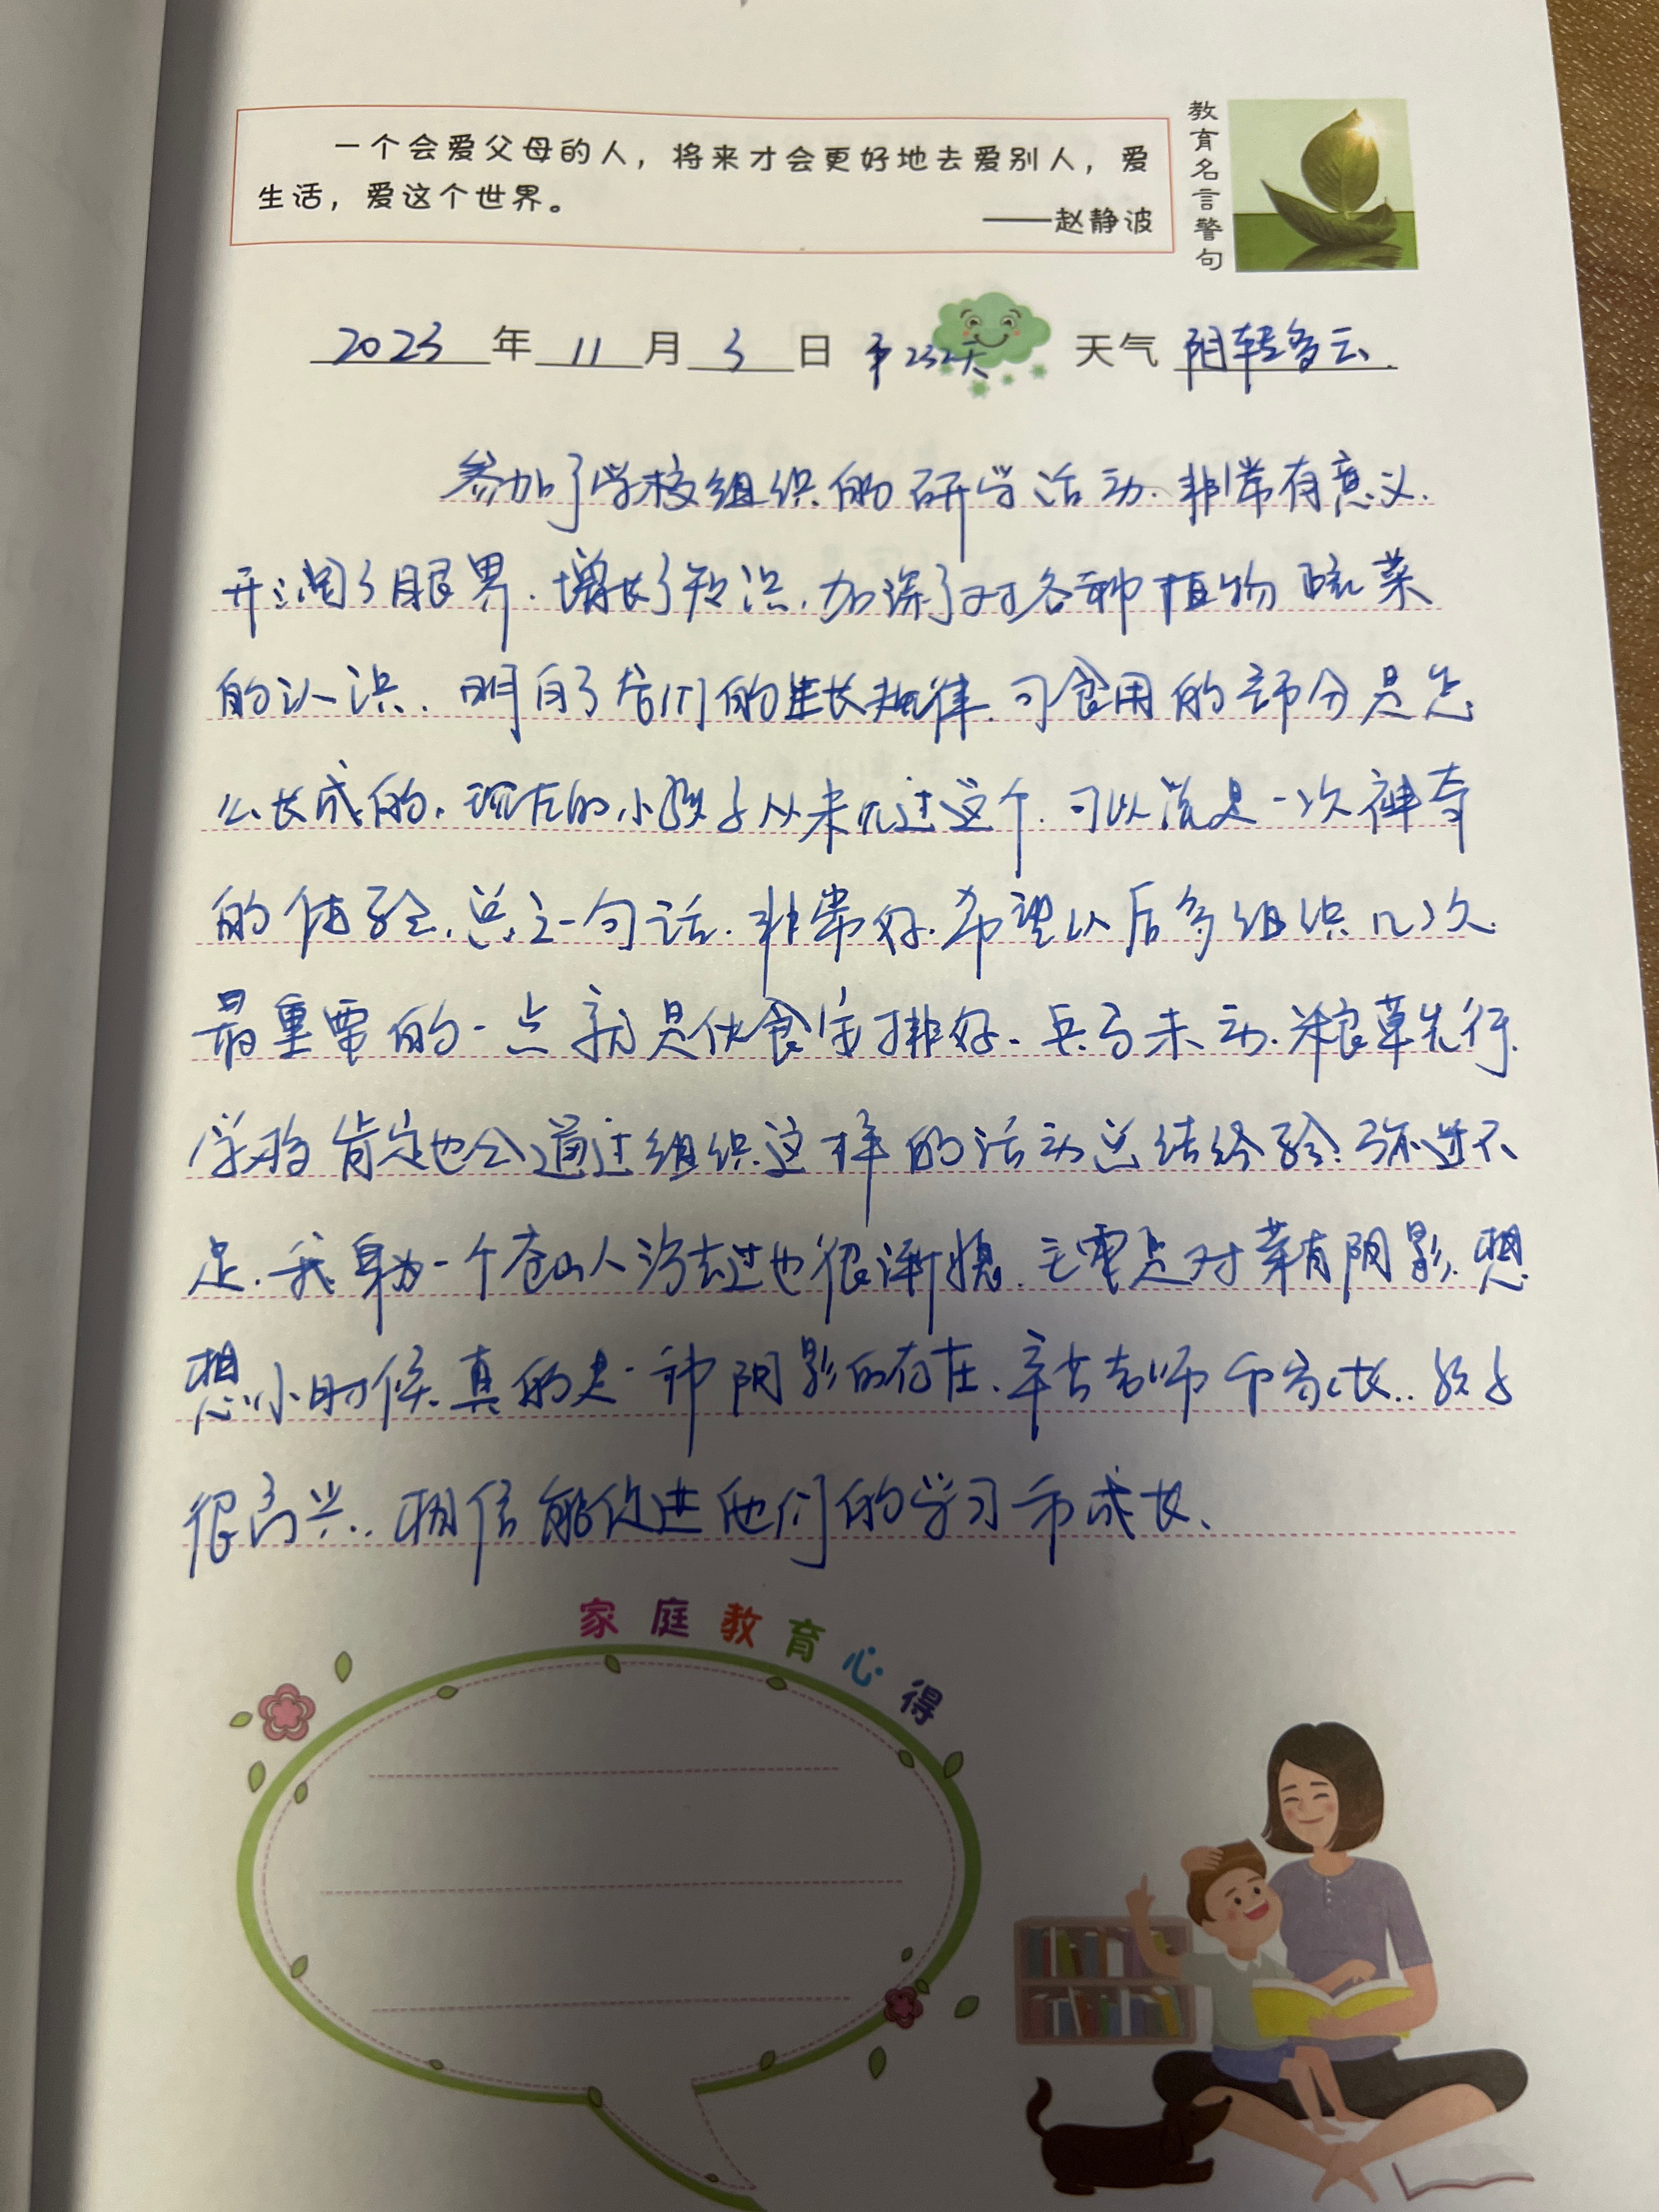 一个会爱父母的人，将来才会更好地去爱别人，爱
生活，爱这个世界。
——赵静波
教育名言警句
2023年11月3日 第232天 天气 阴转多云.
参加了学校组织的研学活动.非常有意义.
开阔了眼界.增长了知识.加深了对各种植物蔬菜
的认识.明白了它们的生长规律.可食用的部分是怎
么长成的.现在的小孩子从未见过这个.可以说是一次神奇
的体验.总之一句话.非常好.希望以后多组织几次.
最重要的一点就是伙食安排好.兵马未动.粮草先行.
学校肯定也会通过组织这样的活动总结经验.弥进不
足.我身为一个苍山人没去过也很渐愧.主要是对菜有阴影.想
想小时候.真的是一种阴影的存在.辛苦老师和家长..孩子
很高兴..相信能促进他们的学习和成长.
家庭教育心得